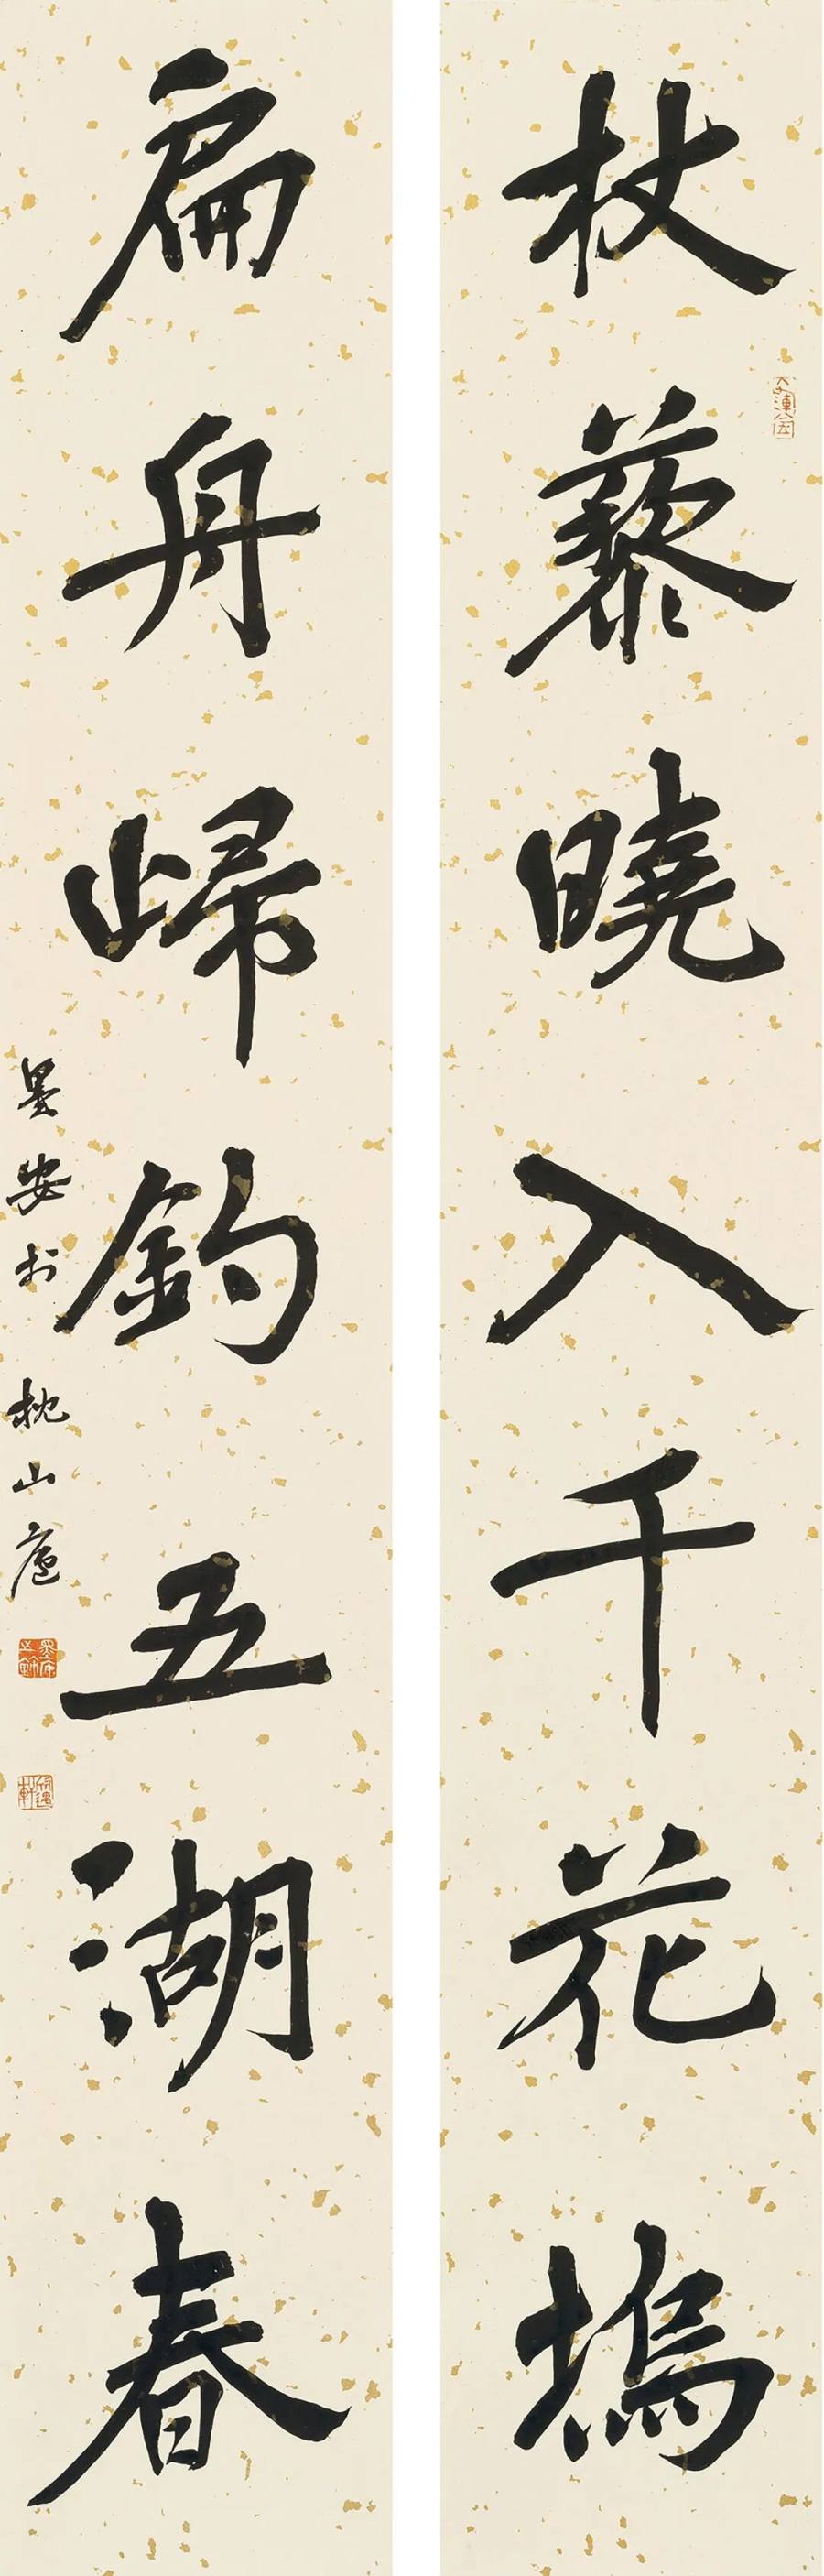 杖藜曉入千花塢
扁舟歸釣五湖春
墨安於枕山廬